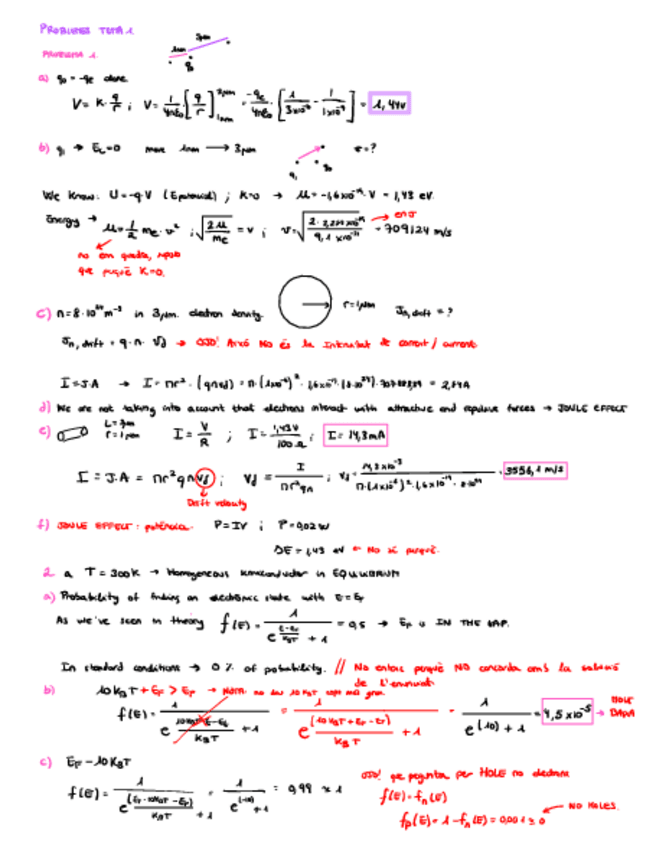 PROBLEMES TEMA 1.
PROBLEMA 1.
1nm 3μm
q₀
a) q₀ = -qe alone
V = K · q/r ; V = 1/4πε₀ [q/r]³μm₁nm = -qe/4πε₀ · [1/3x10⁻⁶ - 1/1x10⁻⁹] = 1,44V
b) q₁ → Ec=0 move 1nm → 3μm v=?
q₁ q₀
We know: U=-q·V (Epotencial) ; K=0 → U = -1,6x10⁻¹⁹ · V = 1,43 eV.
Energy → U = 1/2 me · v² ; √(2U/me) = v ; = 709124 m/s
en J
no em quadra, suposo
que perquè K=0.
c) n=8·10²⁴ m⁻³ in 3μm. electron density. r=1μm Jn,drift = ?
Jn,drift = q·n·vd → OJO! Això NO és la Intensitat de corrent / current
I=J·A → I= πr² · (qnvd) = = 2,84A
d) We are not taking into account that electrons interact with attractive and repulsive forces → JOULE EFFECT
e) L=3μm
r=1μm I = V/R ; I = 1,43V/100Ω ; I = 14,3mA
I = J·A = πr²qnvd ; vd = I/πr²qn ; vd = 14,3x10⁻³/π·(1x10⁻⁶)²·1,6x10⁻¹⁹·8·10²⁴ = 3556,1 m/s
Drift velocity
f) JOULE EFFECT: potència. P=IV ; P=0,02W
ΔE = 1,43 eV ← No sé perquè.
2. a T = 300K → Homogeneous semiconductor in EQUILIBRIUM
a) Probability of finding an electronic state with E=EF
As we've seen in theory f(E) = 1/(e^((E-EF)/KBT) + 1) = 0,5 → EF is IN THE GAP.
In standard conditions → 0 % of probability. // No entenc perquè NO concorda amb la solució
de l'enunciat
b) 10KBT + EF > EF → NOTA:
f(E) = 1/(e^((10KBT+E-EF)/KBT) + 1) = 1/(e^((10KBT+EF-EF)/KBT) + 1) = 1/(e^(10) + 1) = 4,5x10⁻⁵ → HOLE
BANDA
c) EF - 10KBT
f(E) = 1/(e^((EF-10KBT-EF)/KBT) + 1) = 1/(e^(-10) + 1) = 0,99 ≈ 1
OJO! que pregunten per HOLE no electrons
f(E) = fn(E)
fp(E) = 1 - fn(E) = 0,001 ≅ 0 ← NO HOLES.